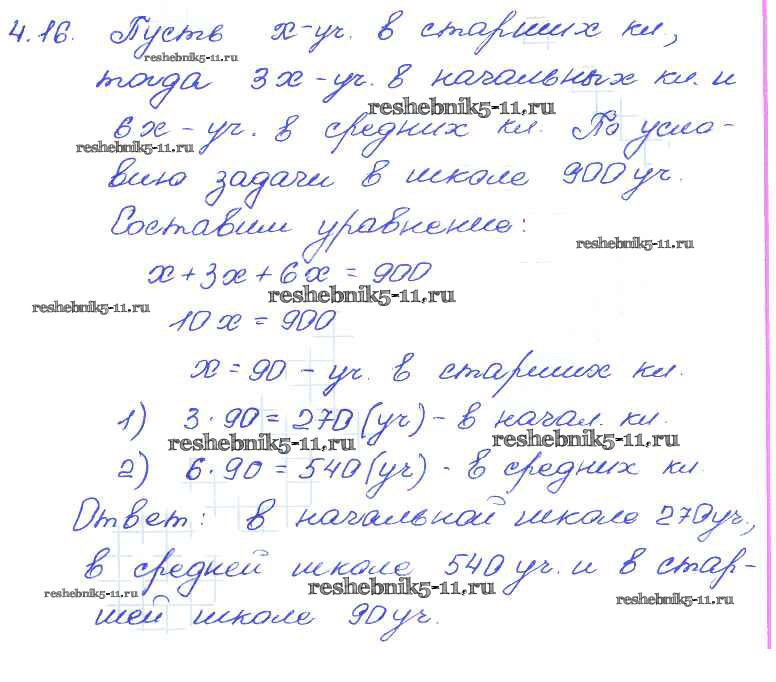 4.16. Пусть x-уч. в старших кл.,
reshebnik5-11.ru
тогда 3x-уч. в начальных кл. и
reshebnik5-11.ru
6x-уч. в средних кл. По усло-
reshebnik5-11.ru
вию задачи в школе 900 уч.
Составим уравнение:
reshebnik5-11.ru
x+3x+6x=900
reshebnik5-11.ru
reshebnik5-11.ru
10x=900
x=90 - уч. в старших кл.
1) 3·90=270(уч)- в начал. кл.
reshebnik5-11.ru reshebnik5-11.ru
2) 6·90=540(уч)- в средних кл.
Ответ: в начальной школе 270 уч.,
в средней школе 540 уч. и в стар-
reshebnik5-11.ru reshebnik5-11.ru reshebnik5-11.ru
шей школе 90 уч.